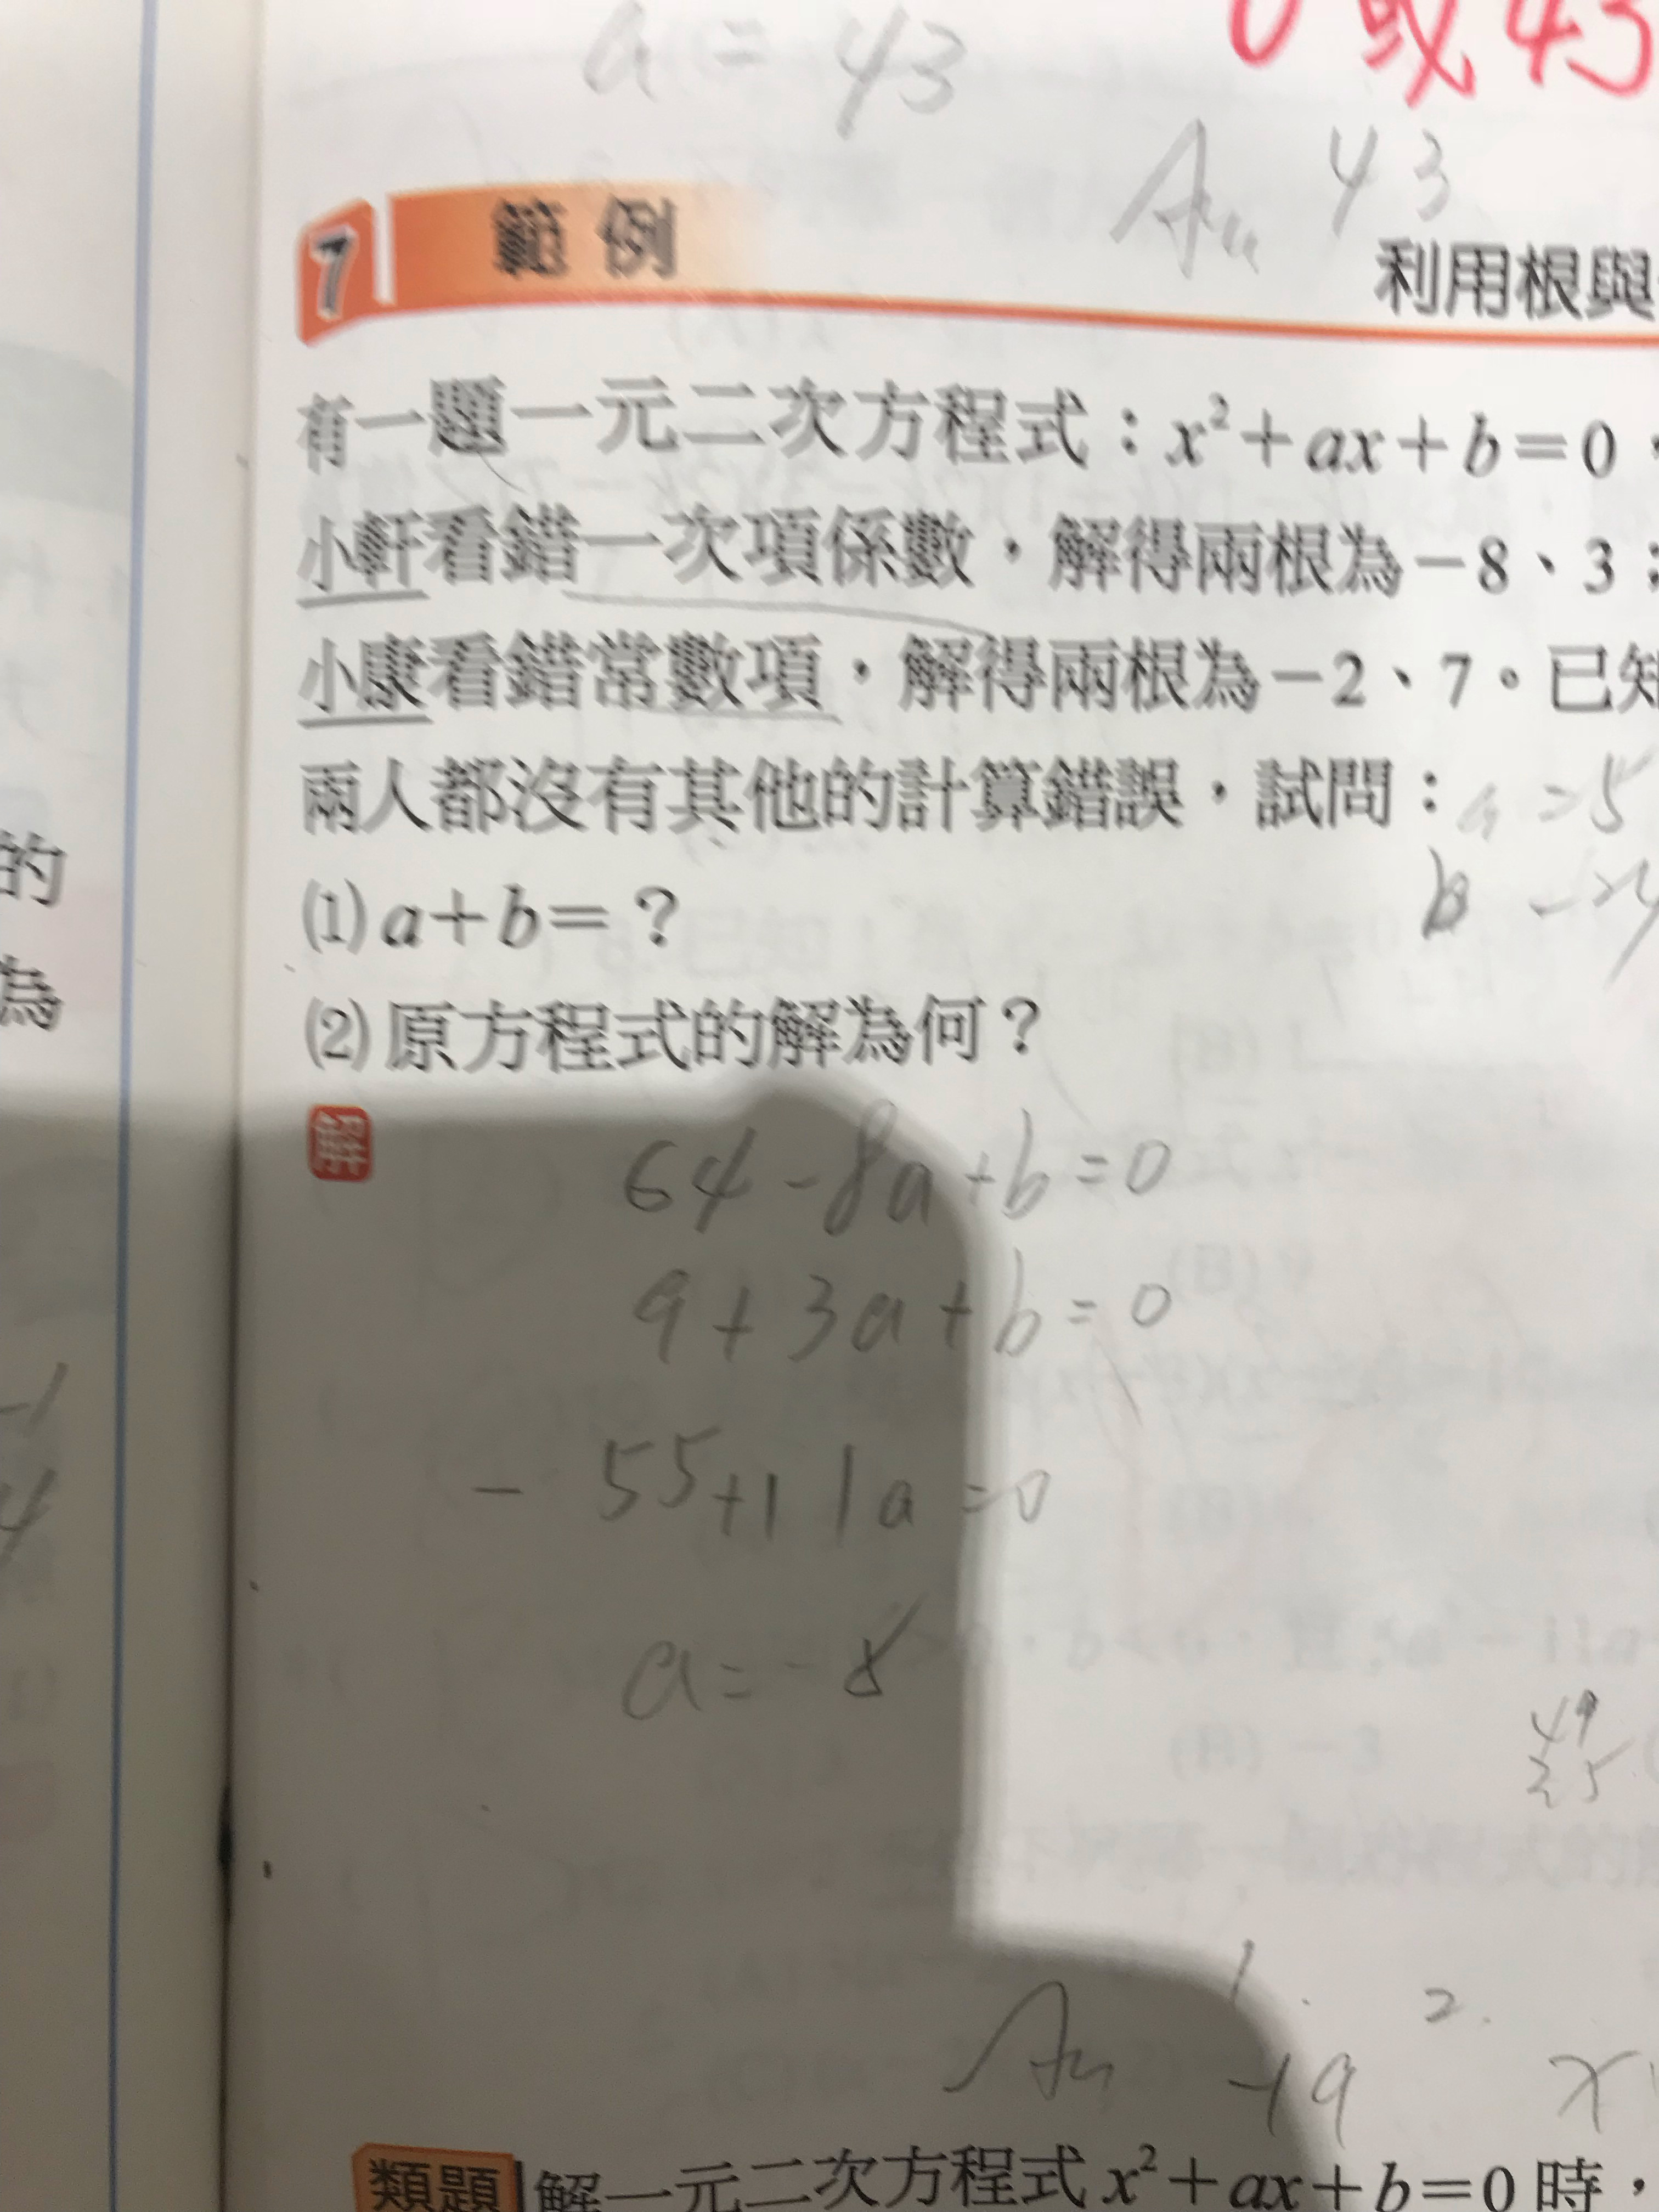 a = 43
0 或 43
An 43
7 範例
利用根與
有一題一元二次方程式：x²+ax+b=0，
小軒看錯一次項係數，解得兩根為−8、3；
小康看錯常數項，解得兩根為−2、7。已知
兩人都沒有其他的計算錯誤，試問：
a = 5
b -24
(1) a+b=？
(2) 原方程式的解為何？
解
64 - 8a + b = 0
9 + 3a + b = 0
- 55 + 11a = 0
a = - 8
49
25
1. 2.
An -19 x
類題 解一元二次方程式 x²+ax+b=0 時，
的
為
-1
4